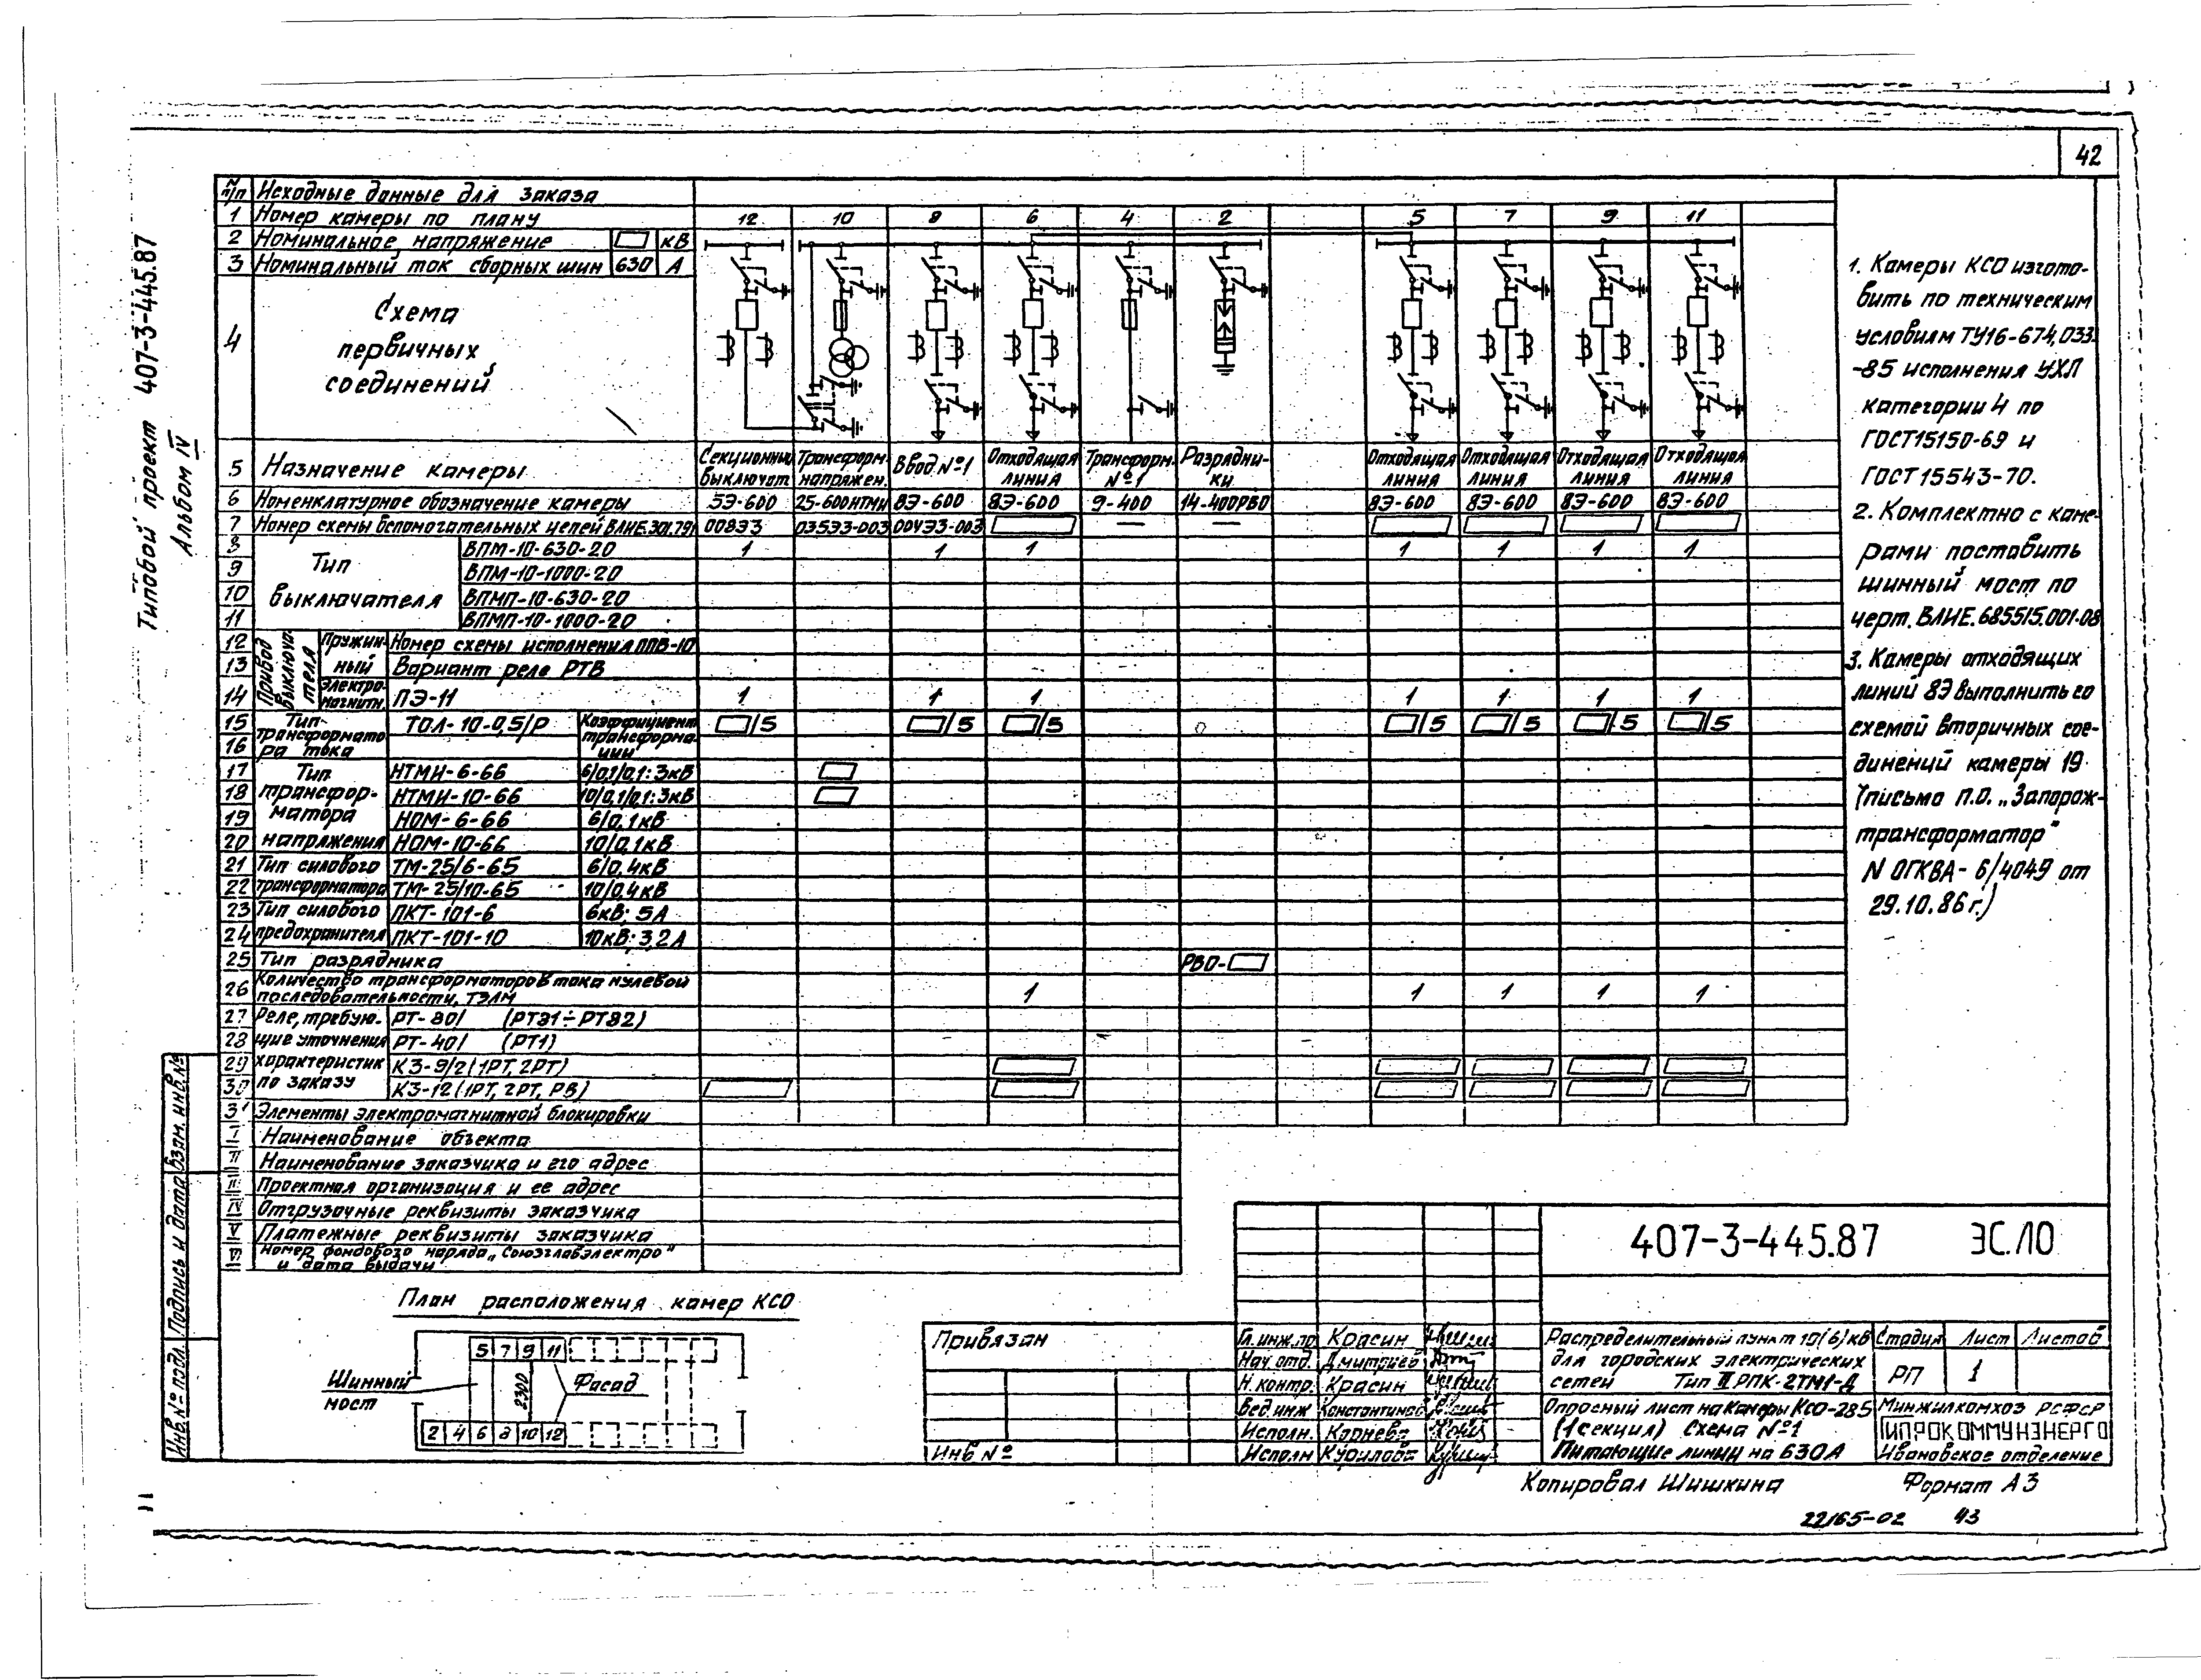 42
Типовой проект 407-3-445.87
Альбом IV
N п/п Исходные данные для заказа
1 Номер камеры по плану 12 10 8 6 4 2 5 7 9 11
2 Номинальное напряжение кВ
3 Номинальный ток сборных шин 630 А
4 Схема
первичных
соединений
5 Назначение камеры
Секционный выключат.
Трансформ. напряжен.
Ввод №1
Отходящая линия
Трансформ. №1
Разрядни-ки
Отходящая линия
Отходящая линия
Отходящая линия
Отходящая линия
6 Номенклатурное обозначение камеры 5Э-600 25-600НТМИ 8Э-600 8Э-600 9-400 14-400РВО 8Э-600 8Э-600 8Э-600 8Э-600
7 Номер схемы вспомогательных цепей ВЛИЕ.301.791 008ЭЗ 035ЭЗ-003 004ЭЗ-003 — —
Тип
выключателя
8 ВПМ-10-630-20 1 1 1 1 1 1 1
9 ВПМ-10-1000-20
10 ВПМП-10-630-20
11 ВПМП-10-1000-20
Привод выключа-теля
Пружин-ный
12 Номер схемы исполнения ППВ-10
13 Вариант реле РТВ
14 Электро-магнитн. ПЭ-11 1 1 1 1 1 1 1
15 Тип ТОЛ-10-0,5/Р Коэффициент /5 /5 /5 /5 /5 /5 /5
трансформато трансформа-
16 ра тока ции
17 Тип НТМИ-6-66 6/0,1/0,1:3кВ
18 трансфор- НТМИ-10-66 10/0,1/0,1:3кВ
19 матора НОМ-6-66 6/0,1кВ
20 напряжения НОМ-10-66 10/0,1кВ
21 Тип силового ТМ-25/6-65 6/0,4кВ
22 трансформатора ТМ-25/10-65 10/0,4кВ
23 Тип силового ПКТ-101-6 6кВ; 5А
24 предохранителя ПКТ-101-10 10кВ; 3,2А
25 Тип разрядника РВО-
26 Количество трансформаторов тока нулевой
последовательности, ТЗЛМ 1 1 1 1 1
27 Реле, требую- РТ-80/ (РТ81÷РТ82)
28 щие уточнения РТ-40/ (РТ1)
29 характеристик КЗ-9/2 (1РТ, 2РТ)
30 по заказу КЗ-12 (1РТ, 2РТ, РВ)
31 Элементы электромагнитной блокировки
I Наименование объекта
II Наименование заказчика и его адрес
III Проектная организация и ее адрес
IV Отгрузочные реквизиты заказчика
V Платежные реквизиты заказчика
VI Номер фондового наряда „Союзглавэлектро"
и дата выдачи
1. Камеры КСО изгото-
вить по техническим
условиям ТУ16-674,033-
-85 исполнения УХЛ
категории 4 по
ГОСТ15150-69 и
ГОСТ 15543-70.
2. Комплектно с каме-
рами поставить
шинный мост по
черт. ВЛИЕ.685515.001-08
3. Камеры отходящих
линий 8Э выполнить со
схемой вторичных сое-
динений камеры 19
(письмо П.О. „Запорож-
трансформатор"
N ОГКВА-6/4049 от
29.10.86г.)
План расположения камер КСО
5 7 9 11
Шинный
мост
2300
Фасад
2 4 6 8 10 12
Привязан
Инв №
407-3-445.87 ЭС.ЛО
Гл. инж. пр. Красин
Нач. отд. Дмитриев
Н. контр. Красин
Вед. инж Константинов
Исполн. Корнева
Исполн Курилова
Распределительный пункт 10(6) кВ
для городских электрических
сетей Тип II РПК-2ТМ1-Д
Стадия Лист Листов
РП 1
Опросный лист на камеры КСО-285
(1 секция) Схема №1
Питающие линии на 630А
Минжилкомхоз РСФСР
ГИПРОКОММУНЭНЕРГО
Ивановское отделение
Копировал Шишкина Формат А3
22165-02 43
Инв. № подл. Подпись и дата Взам. инв. №